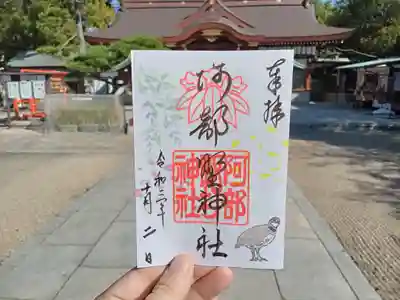 奉拝
阿部野神社
阿部野神社
令和二年
十月二日